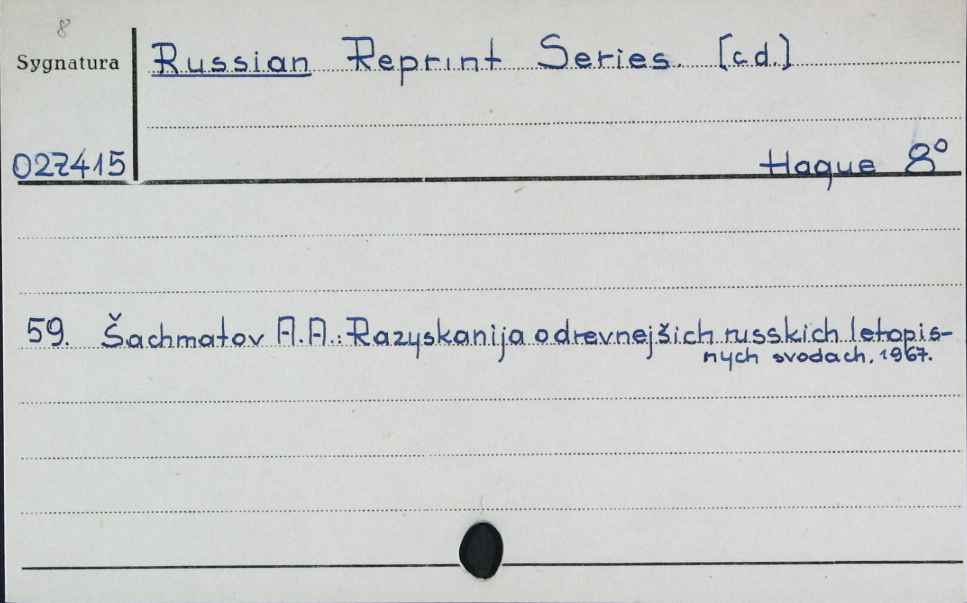 8
Sygnatura
Russian Reprint Series. [cd.]
027415
Hague 8°
59. Šachmatov A.A.: Razyskanija o drevnejšich russkich letopis-
nych svodach. 1967.